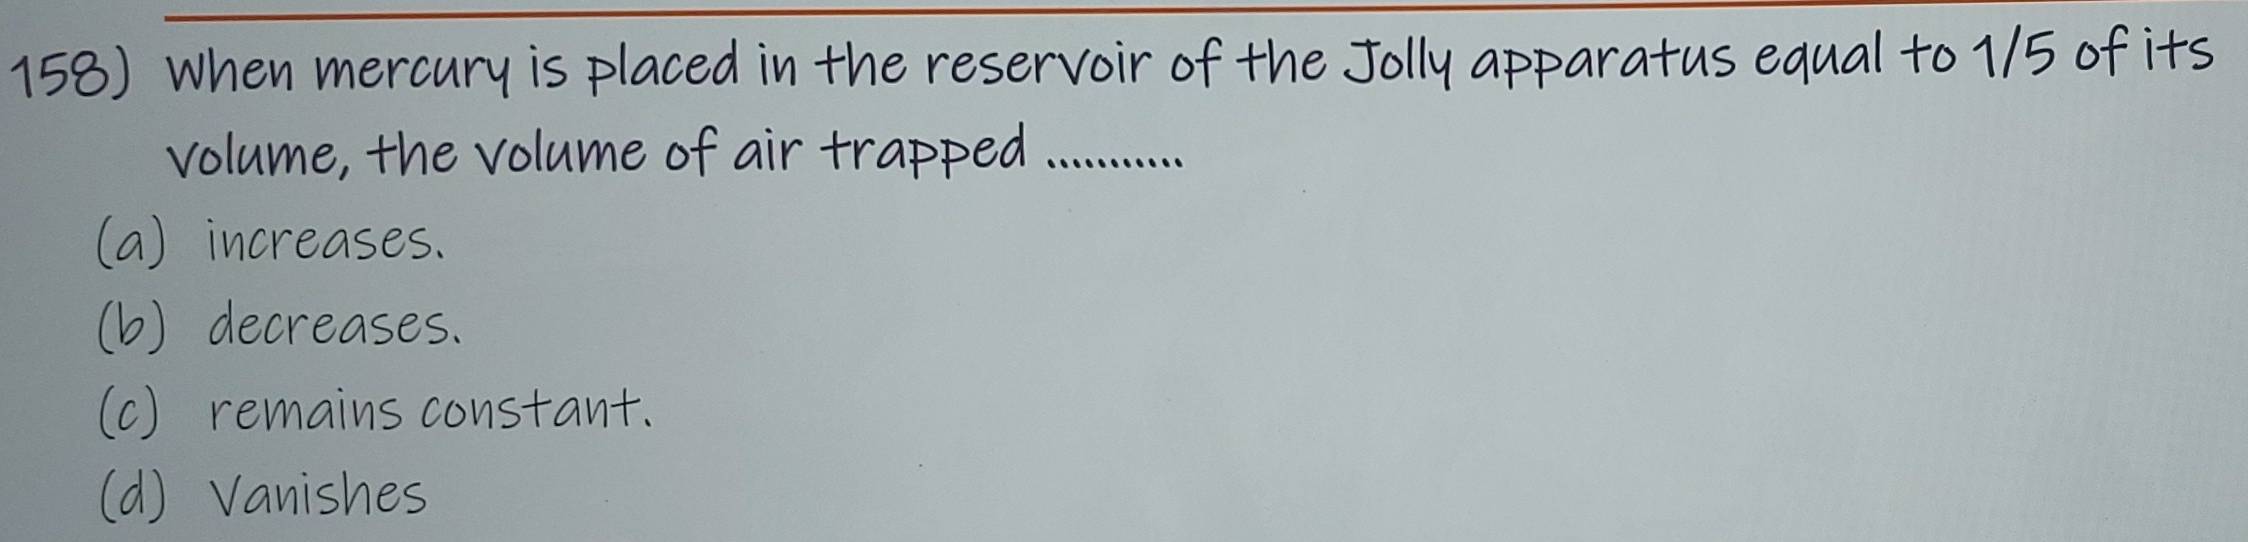 158) When mercury is placed in the reservoir of the Jolly apparatus equal to 1/5 of its
volume, the volume of air trapped ...........
(a) increases.
(b) decreases.
(c) remains constant.
(d) Vanishes